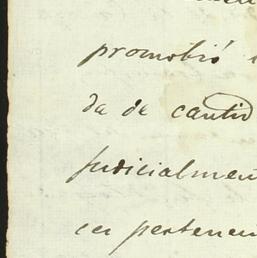 promobió
da de cantid
judicialmen
cer pertenen